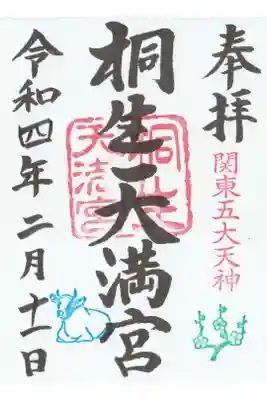 奉拝
関東五大天神
桐生天満宮
令和四年二月十一日